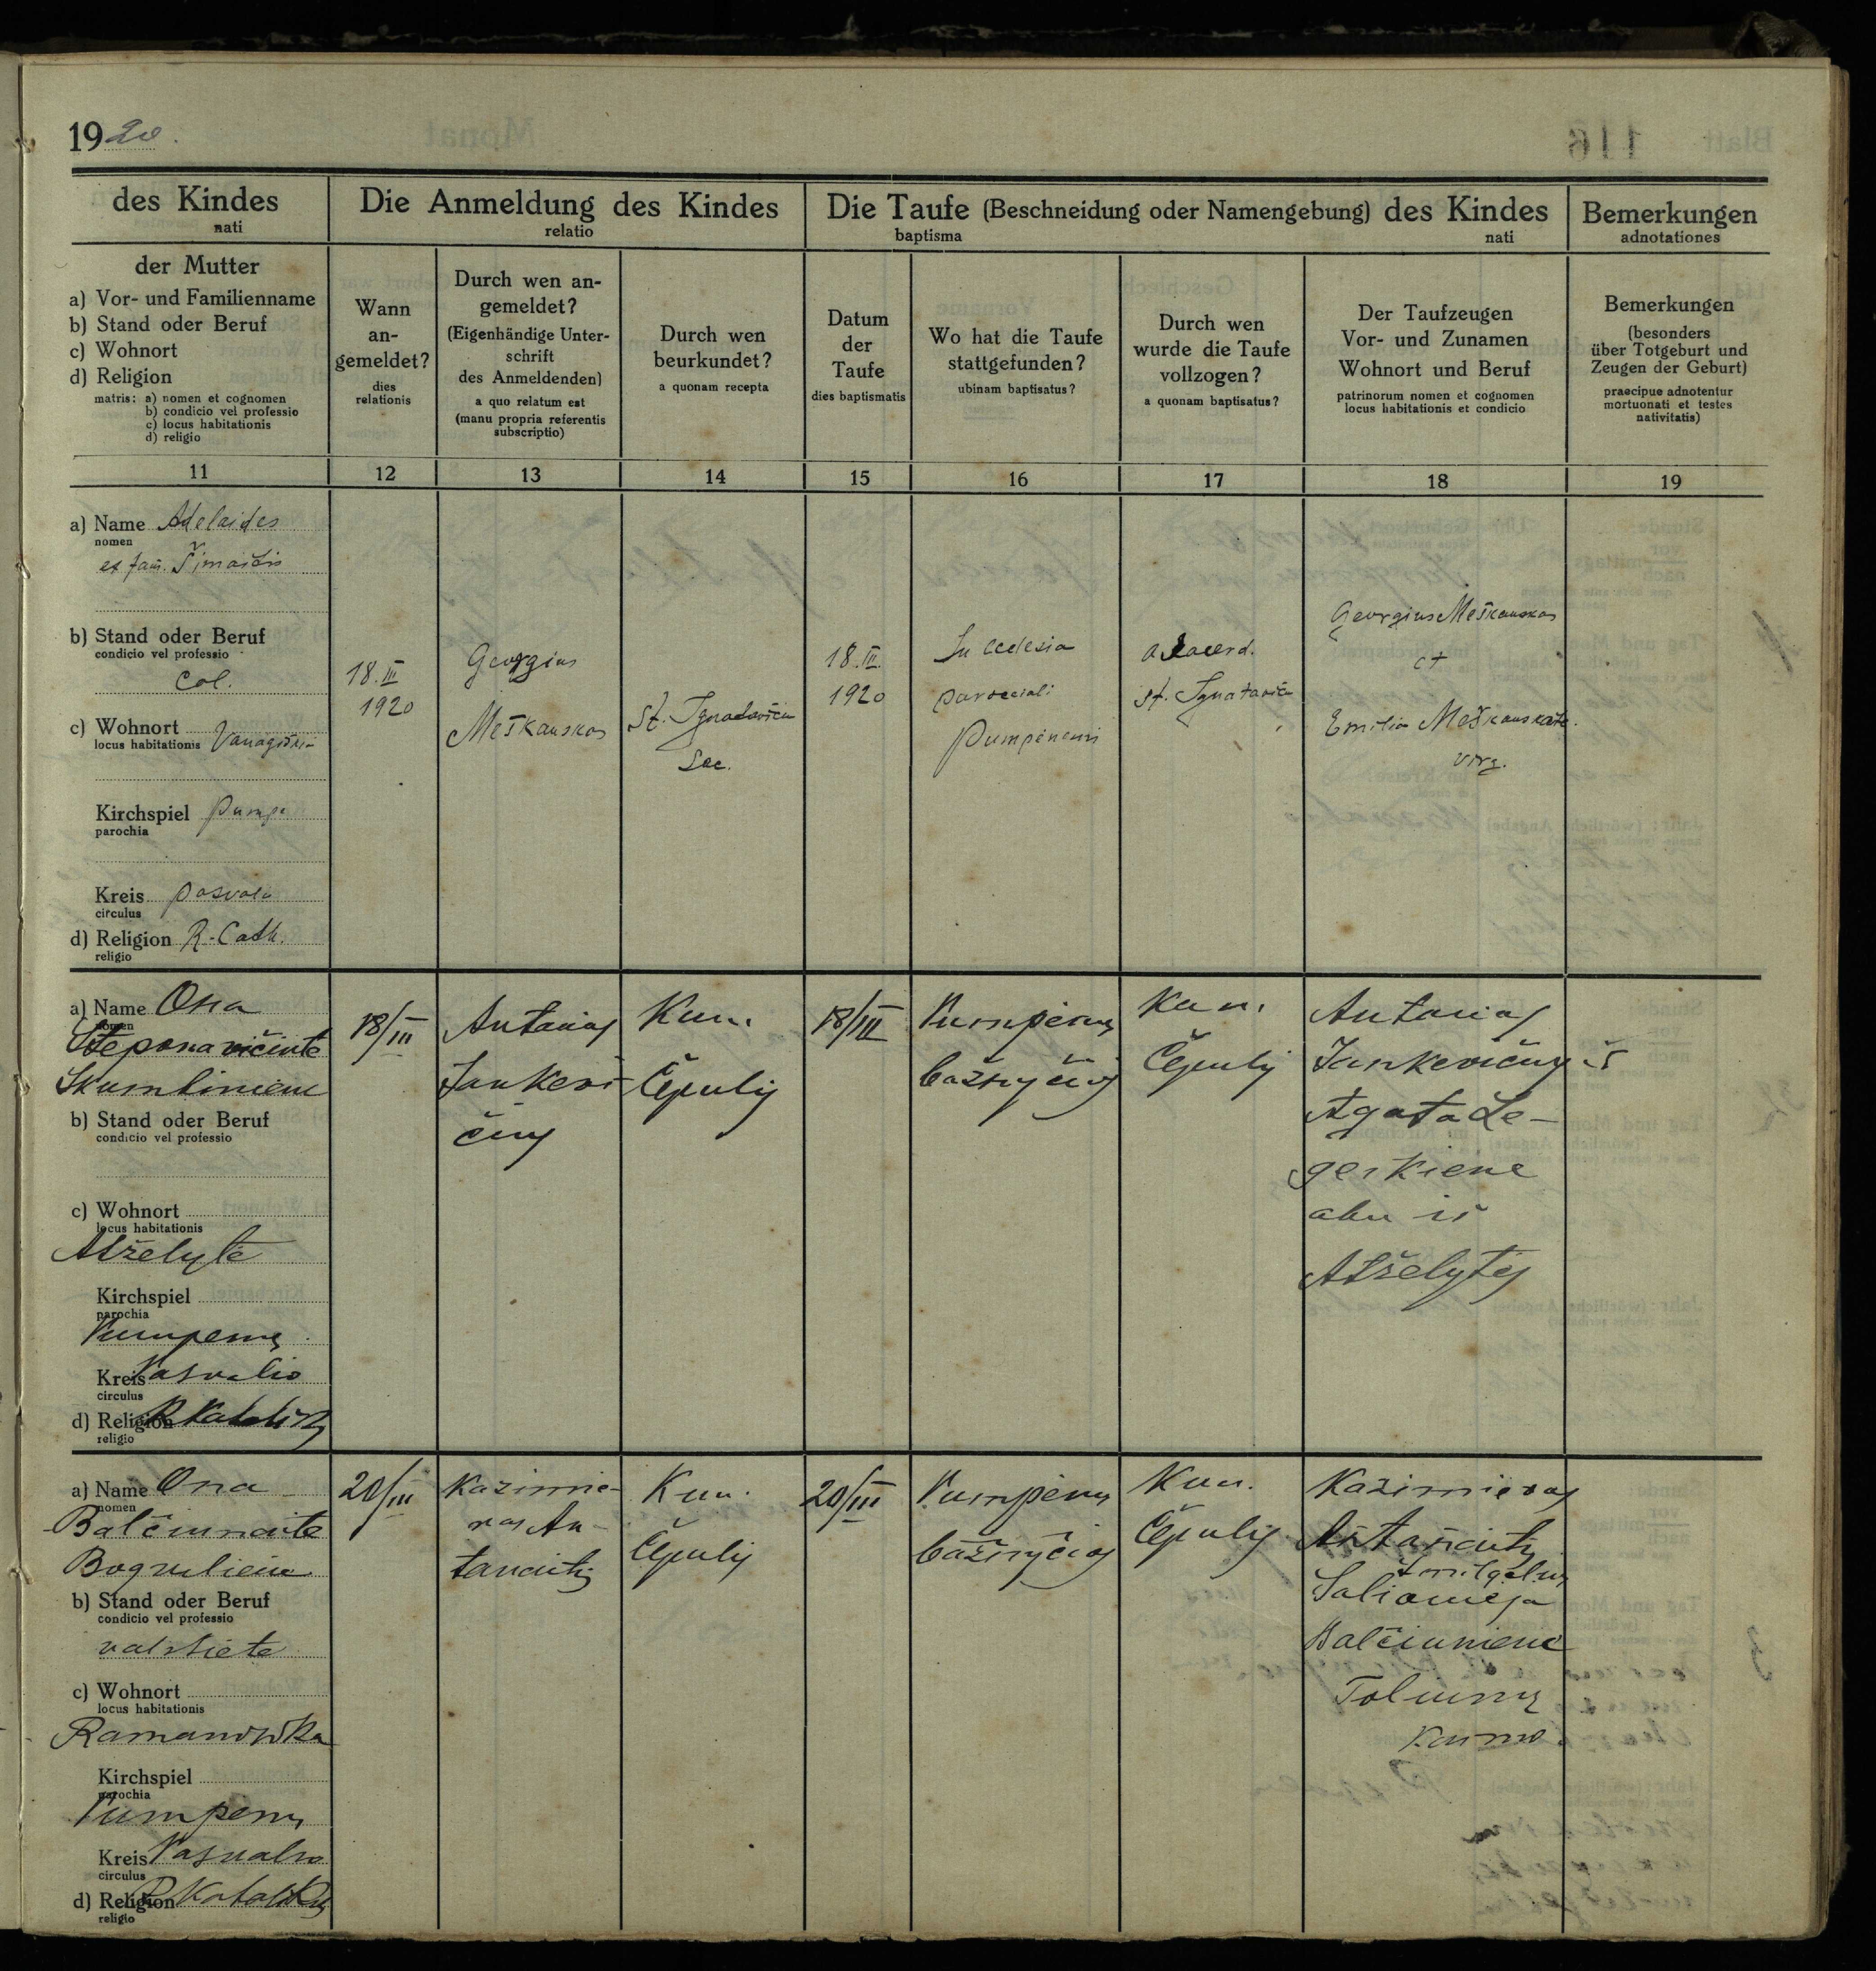 1920.
des Kindes
nati
Die Anmeldung des Kindes
relatio
Die Taufe (Beschneidung oder Namengebung) des Kindes
baptisma nati
Bemerkungen
adnotationes
der Mutter
a) Vor- und Familienname
b) Stand oder Beruf
c) Wohnort
d) Religion
matris: a) nomen et cognomen
b) condicio vel professio
c) locus habitationis
d) religio
Wann
an-
gemeldet?
dies
relationis
Durch wen an-
gemeldet?
(Eigenhändige Unter-
schrift
des Anmeldenden)
a quo relatum est
(manu propria referentis
subscriptio)
Durch wen
beurkundet?
a quonam recepta
Datum
der
Taufe
dies baptismatis
Wo hat die Taufe
stattgefunden?
ubinam baptisatus?
Durch wen
wurde die Taufe
vollzogen?
a quonam baptisatus?
Der Taufzeugen
Vor- und Zunamen
Wohnort und Beruf
patrinorum nomen et cognomen
locus habitationis et condicio
Bemerkungen
(besonders
über Totgeburt und
Zeugen der Geburt)
praecipue adnotentur
mortuonati et testes
nativitatis)
11 12 13 14 15 16 17 18 19
a) Name Adelaides
nomen
ex fam.
b) Stand oder Beruf
condicio vel professio
Col.
c) Wohnort
locus habitationis
Kirchspiel Pump.
parochia
Kreis Pasvalu
circulus
d) Religion R.-Cath.
religio
18.III
1920
Georgius
Meškauskas
St.
Sac.
18.III.
1920
In ecclesia
paroeciali
Pumpenensi
a sacerd.
St.
Georgius Meškauskas
et
Emilia
virg.
a) Name Ona
nomen
Steponavičiute
Skumbiniene
b) Stand oder Beruf
condicio vel professio
c) Wohnort
locus habitationis
Atželyte
Kirchspiel
parochia
Pumpenų
Kreis Pasvalio
circulus
d) Religion R Katalikų
religio
18/III
Antanas
Jankevi-
čius
Kun.
Čepulis
18/III
Pumpėnų
bažnyčios
Kun.
Čepulis
Antanas
Jankevičius iš
Agata Le-
geskiene
abu iš
Atželytės
a) Name Ona
nomen
Balčiunaite
b) Stand oder Beruf
condicio vel professio
valstiete
c) Wohnort
locus habitationis
Ramanovska
Kirchspiel
parochia
Pumpenų
Kreis Pasvalio
circulus
d) Religion R Katalikų
religio
20/III
Kazimie-
ras An-
tanaitis
Kun.
Čepulis
20/III
Pumpėnų
bažnyčios
Kun.
Čepulis
Kazimieras
Antanaitis
Saliomeja
Balčiuniene
Toliunų
Kaimo